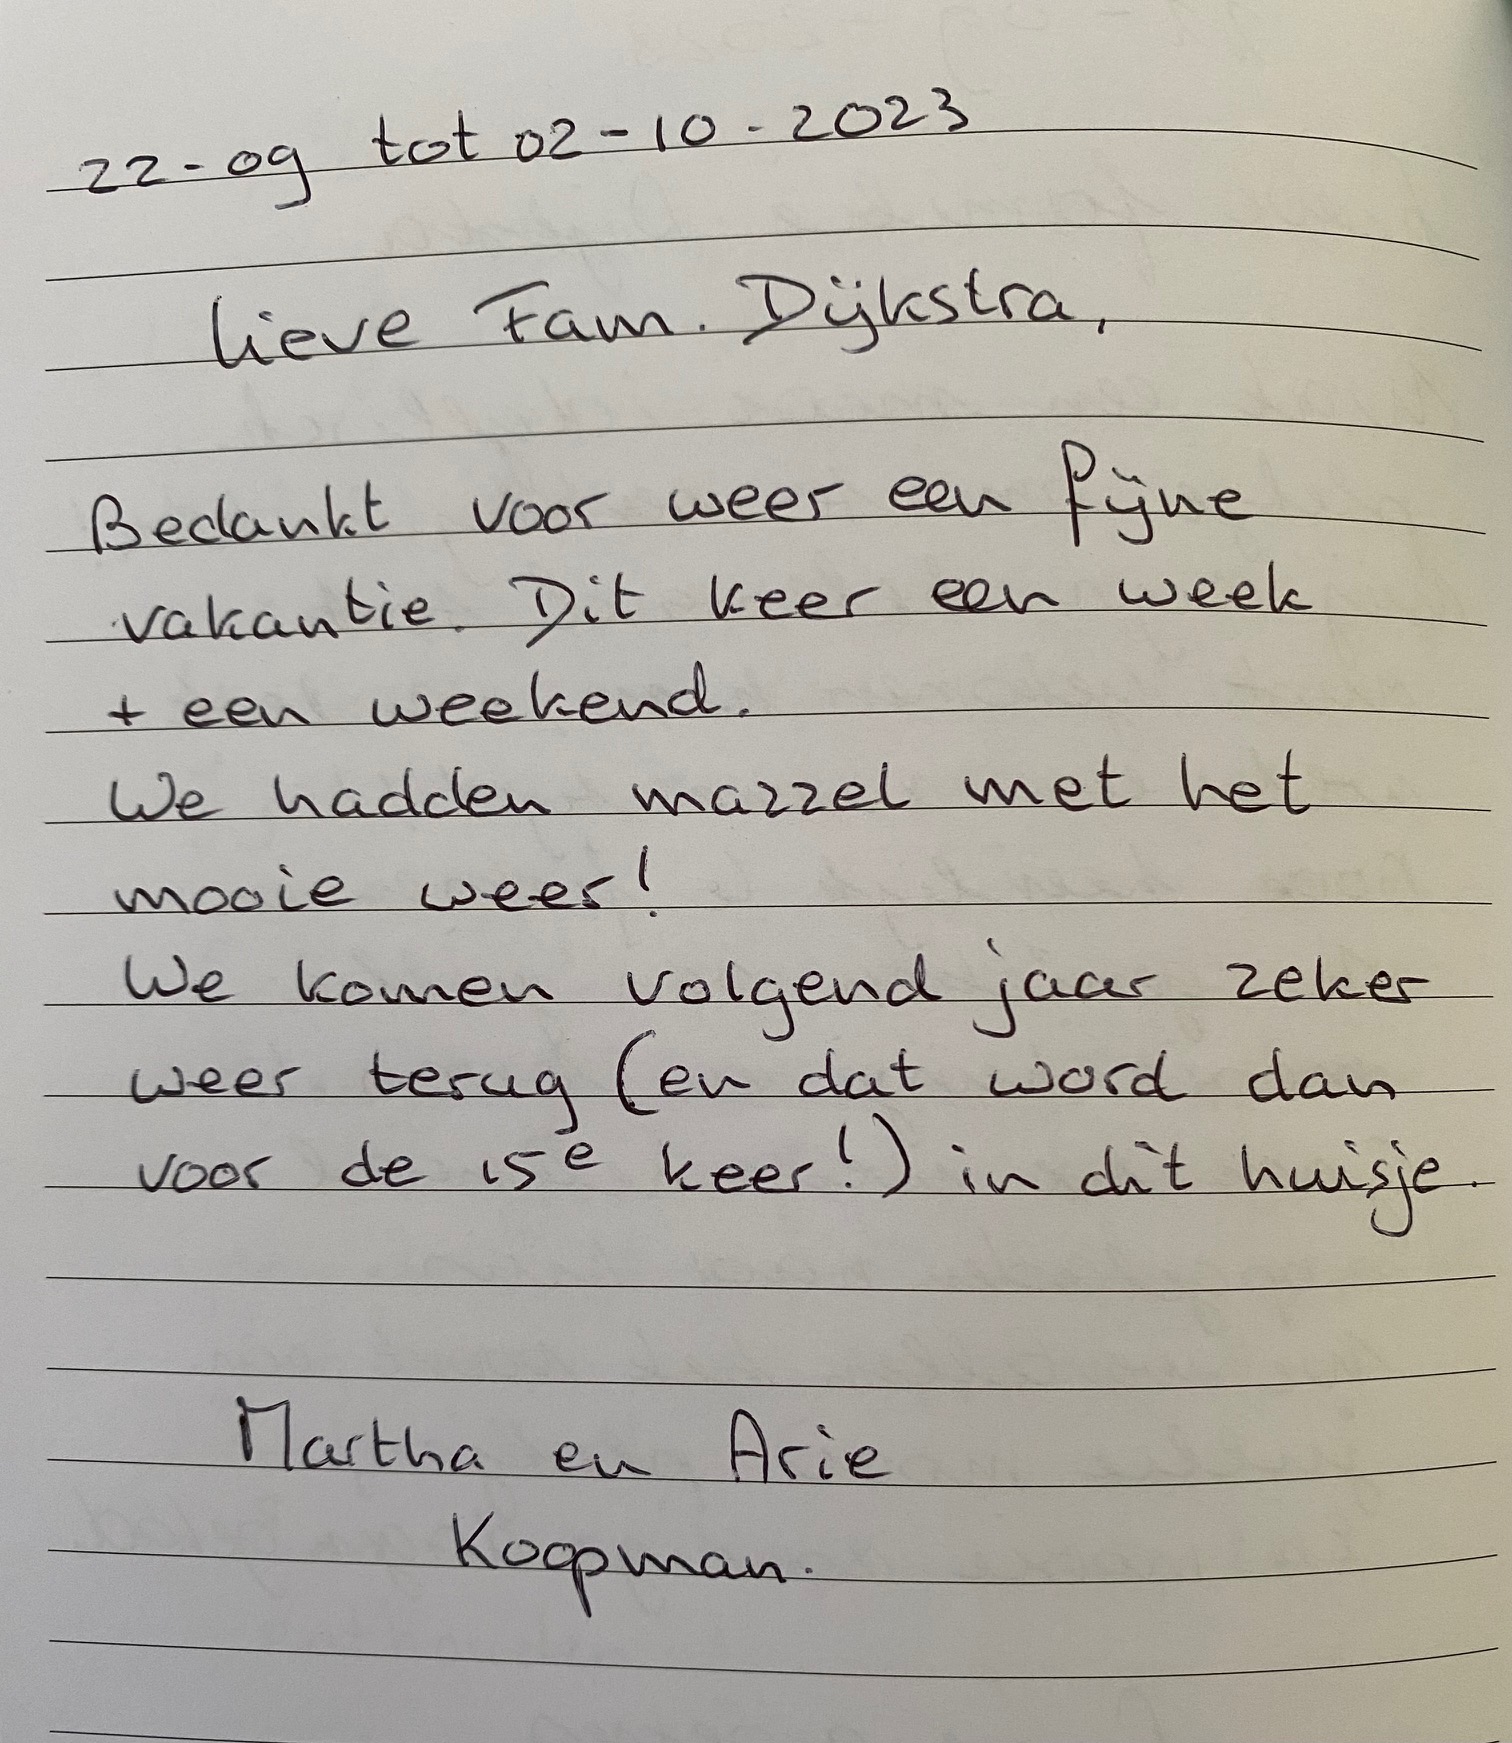 22-09 tot 02-10-2023
lieve Fam. Dijkstra,
Bedankt voor weer een fijne
vakantie. Dit keer een week
+ een weekend.
We hadden mazzel met het
mooie weer!
We komen volgend jaar zeker
weer terug (en dat word dan
voor de 15e keer!) in dit huisje.
Martha en Arie
Koopman.